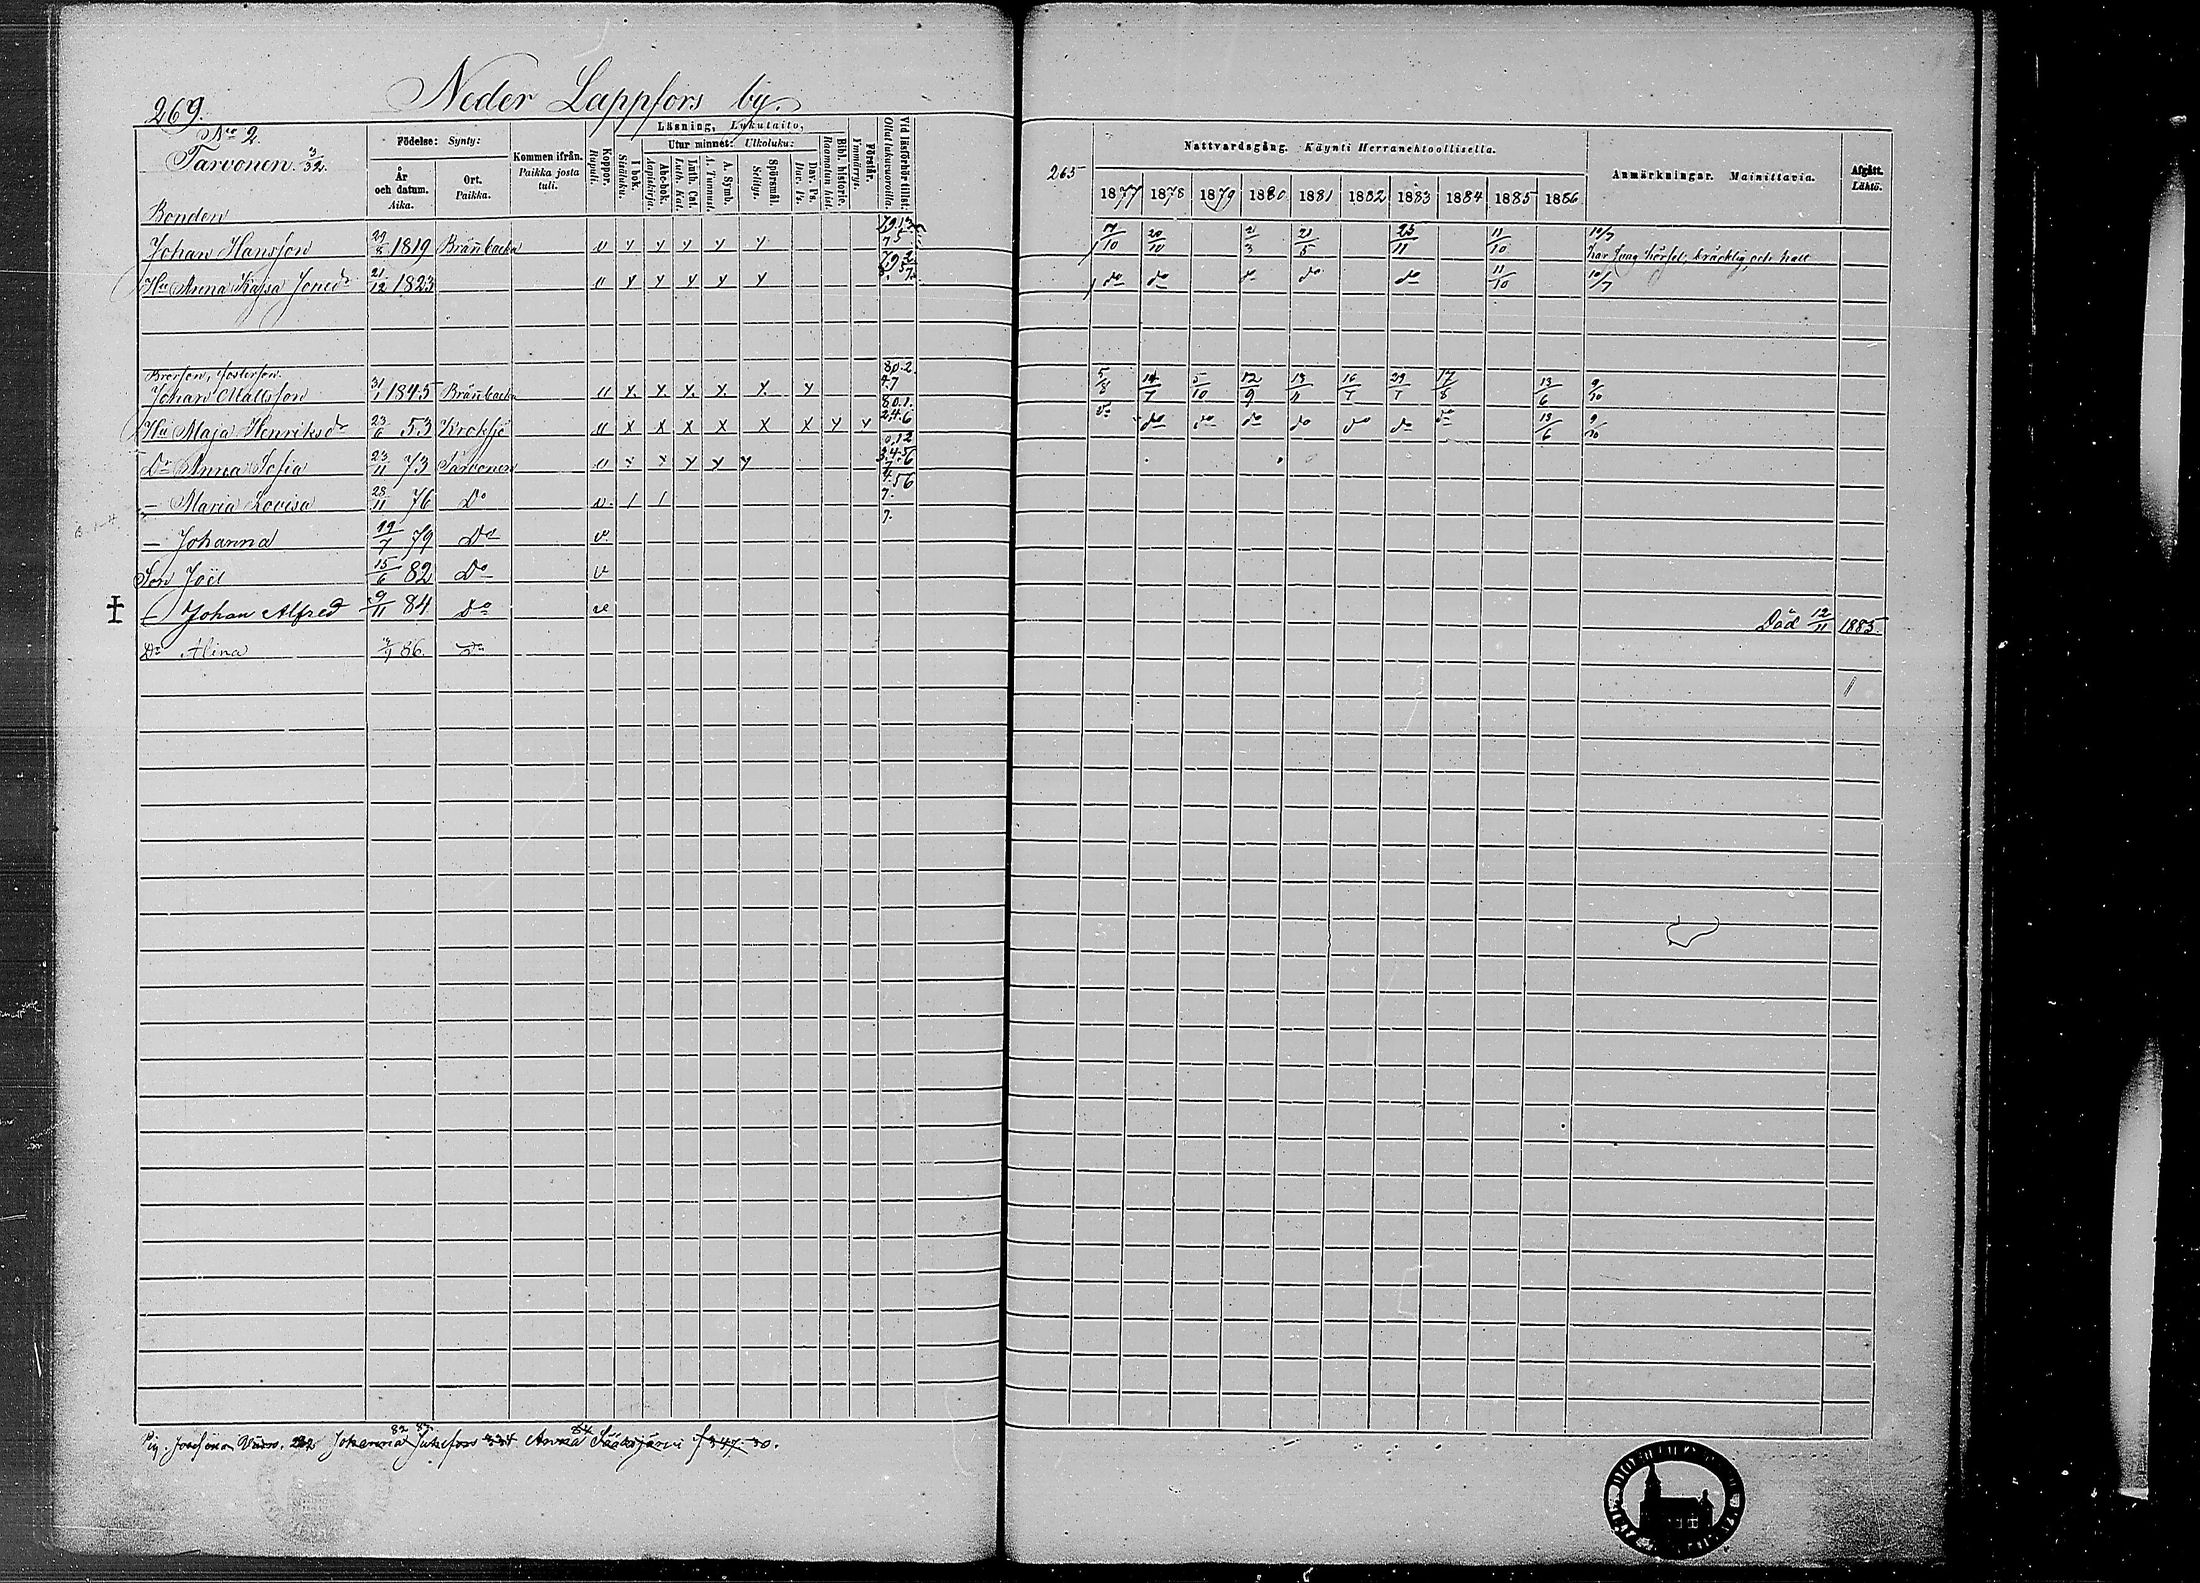 Neder Lappfors by.
269.
No 2.
Tarvonen 3/32.
Födelse: Synty:
År och datum. Aika.
Ort. Paikka.
Kommen ifrån. Paikka josta tuli.
Koppor. Rupuli.
Läsning, Lukutaito,
I bok. Sisäluku.
Utur minnet: Ulkoluku:
Abc-bok. Aapiskirja.
Luth. Cat. Luth. Kat.
A. Symb. A. Tunnust.
Spörsmål. Selitys.
Dav. Ps. Dav. Ps.
Bibl. historie. Raamatun hist.
Förstår. Ymmärrys.
Vid läsförhör tillst: Ollut lukuvuoroilla:
265
Nattvardsgång. Käynti Herranehtoollisella.
1877 1878 1879 1880 1881 1882 1883 1884 1885 1886
Anmärkningar. Mainittavia.
Afgått. Lähtö.
Bonden
Johan Hansson 29/8 1819 Brännbacka v y y y y y 20/10 2/3 21/5 25/11 11/10 10/7 har svag hörsel; bräcklig och halt
Hu Anna Kajsa Jonsdr 21/12 1823 v y y y y y do do do do do 11/10 10/7
Brorson, fosterson.
Johan Mattsson 31/1 1845 Brännbacka v y y y y y y 5/8 14/7 5/10 12/9 13/11 16/7 29/7 17/8 13/6 9/10
Hu Maja Henriksdr 23/6 53 Kroksjö v x x x x x x y y do do do do do do do do 13/6 9/10
Dr Anna Sofia 23/11 73 Tarvonen v y y y y y
— Maria Lovisa 28/11 76 Do v / /
— Johanna 19/7 79 Do v
Son Joël 15/6 82 Do v
— Johan Alfred 9/11 84 Do v Död 12/11 1885.
Dr Alina 86. Do
Pig. Josefina Johanna Anna Sääksjärvi f 347. 30.